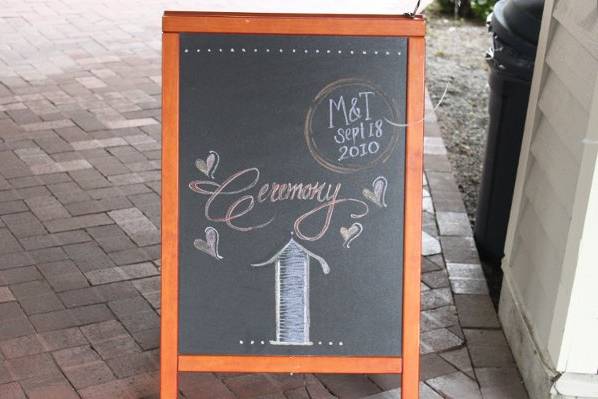 M&T
Sept 18
2010
Ceremony